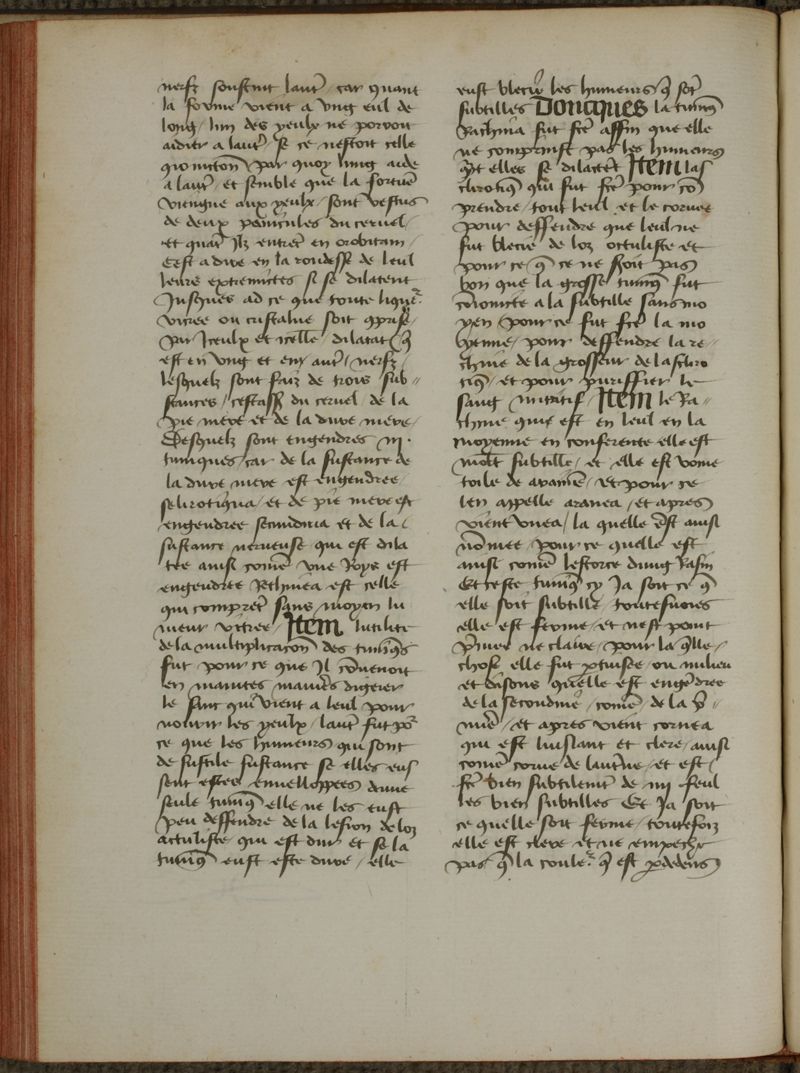 nerfz soustint lautre car quant
la forme vient a ung eul de
long lun des yeulx ne porvoit
aidier a lautre se ce nestoit celle
par quoy lung aide
a lautre et semble que la
viengne aux yeulx sont vestus
de deux panicules du cervel
et quant Ilz entrent en orobitam
Cest a dire en la rondesse de leul
leurs extremites si se dilatent
Jusques ad ce que toute liqueur
vitree ou cristaline soit
par Iceulx et icelle dilatation
est en ung et en autre nerfz
lesquelz sont faiz de trois sub
stances cestassavoir du cervel de la
pie mere et de la dure mere
Desquelz sont engendres iii
tuniques car de la sustance de
la dure mere est engendree
selirotiqua et de pie mere est
engendree secundina et de la
sustance nerveuse qui est dila
tee ainsi comme une Roys est
engendree Rethina est celle
qui comprent sans moyen lu
meur vitree Item lutilite
de la multiplicacion des tuniques
fut pour ce que Il convenoit
en maintes manieres digerer
le sang qui vient a leul pour
nourir les yeulx lautre fut pour
ce que les humeurs qui sont
de sustile sustance se elles eus
sent estees envelloppees dune
seule tunique elle ne les eust
peu deffendre de la lesion de loz
actuliste qui est dur et se la
tunique eust este dure elle
eust blecie les humeurs qui sont
subtilles Doncques la tunique
Rachina fut fete affin que elle
ne comprenist pas les humeurs
elles se dilatent Item las
clirotique qui fut fete pour com
prendre tout leul et le cornee
pour deffendre que leul ne
fut blecie de loz octuliste et
pour ce que ce ne seroit pas
bon que la grosse tunique fut
a la subtille sans mo
yen pour ce fut fete la mo
yenne pour deffendre la re
thine de la grosseur de la scliro
tique et pour puriffier le
sang nutritif Item le Ra
thine qui est en leul en la
moyenne en conferente elle est
moult subtille et elle est come
toile de et pour ce
len appelle aranea et apres
vient vuea la quelle est ainsi
nommee pour ce quelle est
ainsi comme lescorce dung Rasin
Et ceste tunique cy Ja soit ce que
elle soit subtille toutesvoies
elle est ferme et nest point
ne claire pour la quelle
chose elle fut pertuisee ou milieu
et disons quelle est engendree
de la secondine comme de la pri
miere et apres vient cornea
qui est luisant et clere ainsi
comme corne de lanterne et est
fete bien subtilement de iiii feul
les bien subtilles Et Ja soit
ce quelle soit ferme toutefoiz
elle est clere et ne empeche
pas que la couleur qui est par dedens